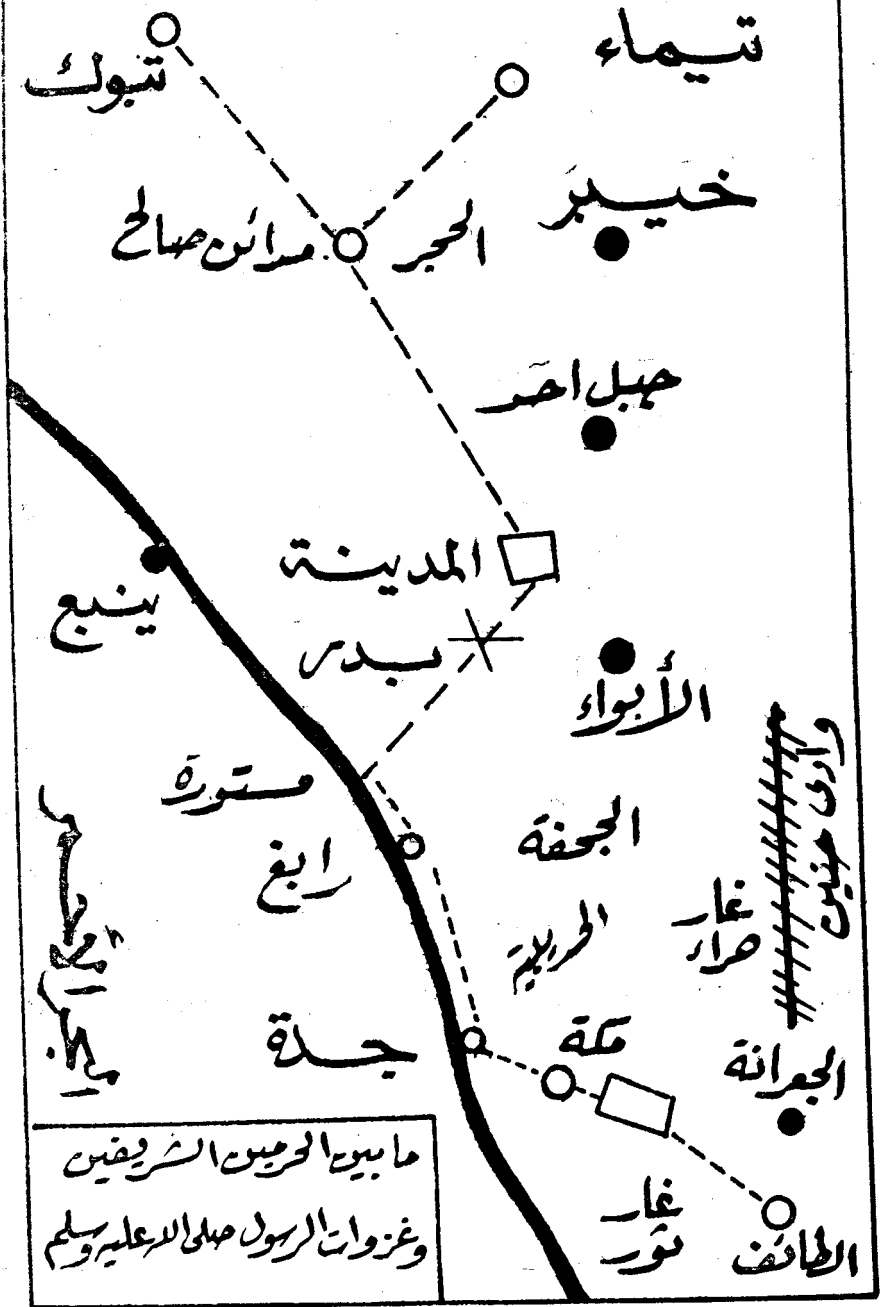 تيماء
تبوك
خيبر
الحجر
مدائن صالح
جبل احد
المدينة
ينبع
بدر
الأبواء
وادى حنين
مستورة
الجحفة
رابغ
غار
حراء
البحر الأحمر
مكة
جدة
الجعرانة
غار
ثور
الطائف
ما بين الحرمين الشريفين
وغزوات الرسول صلى الله عليه وسلم